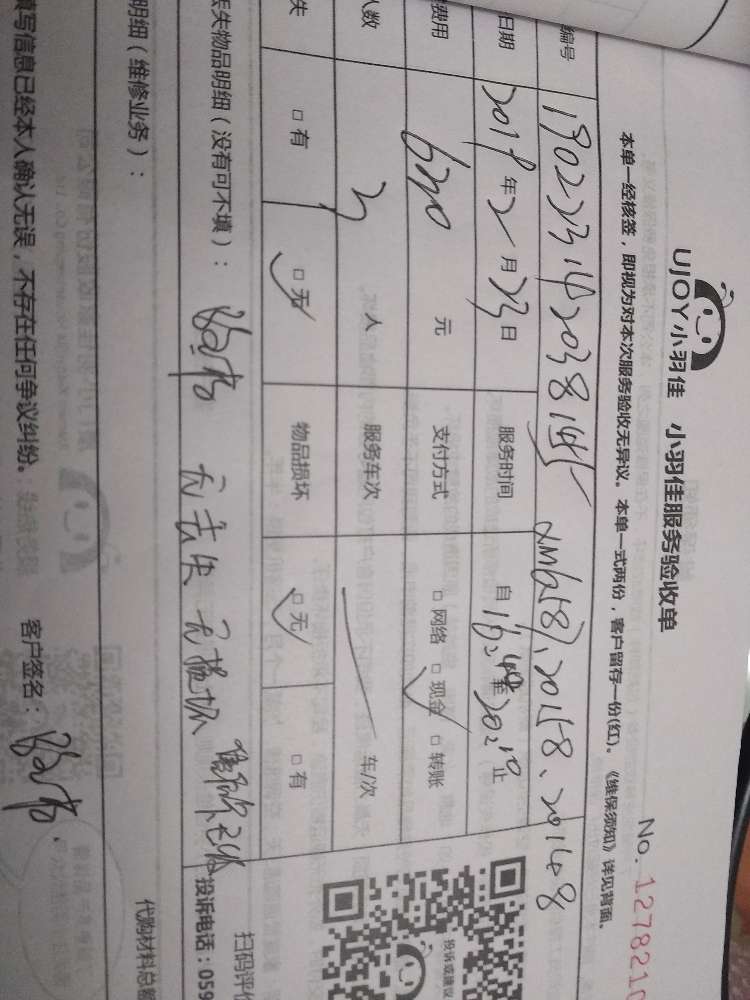 UJOY小羽佳 小羽佳服务验收单
No. 1278210
本单一经核签，即视为对本次服务验收无异议。本单一式两份，客户留存一份(红)。《维保须知》详见背面。
编号
日期 2019年2月23日 服务时间 自16:40至20:10止
费用 元 支付方式 □ 网络 □ 现金 □ 转账
人数 3 人 服务车次 车/次
失 □ 有 □ 无 物品损坏 □ 无 □ 有
丢失物品明细（没有可不填）： 无丢失 无损坏
扫码评价
投诉或建议
投诉电话：059
明细（维修业务）：
代购材料总额
填写信息已经本人确认无误，不存在任何争议纠纷。 客户签名：